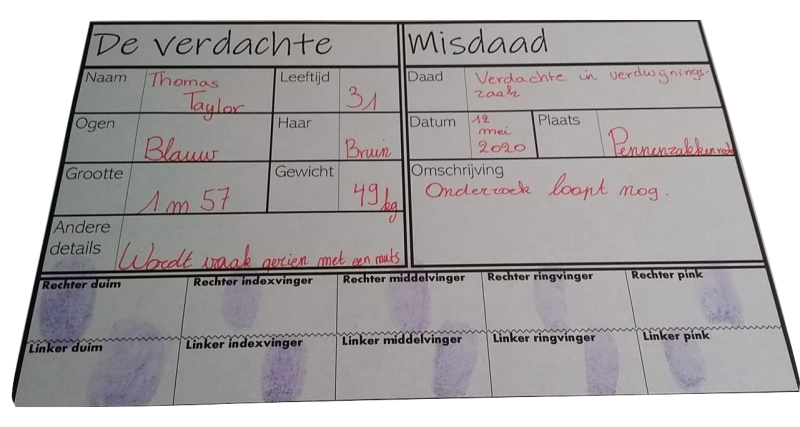 De verdachte
Misdaad
Naam
Thomas
Taylor
Leeftijd
31
Daad
Verdachte in verdwijnings-
zaak
Ogen
Blauw
Haar
Bruin
Datum
12
mei
2020
Plaats
Grootte
1m 57
Gewicht
49kg
Omschrijving
Onderzoek loopt nog.
Andere
details
Wordt vaak gezien met een muts
Rechter duim
Rechter indexvinger
Rechter middelvinger
Rechter ringvinger
Rechter pink
Linker duim
Linker indexvinger
Linker middelvinger
Linker ringvinger
Linker pink